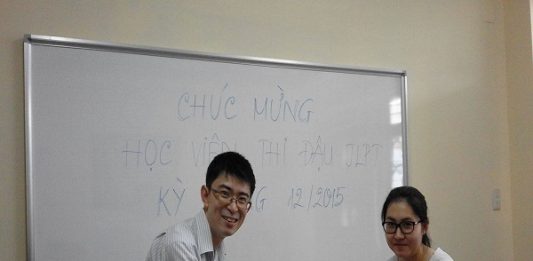 CHÚC MỪNG
HỌC VIÊN THI ĐẬU JLPT
KỲ 12/2015